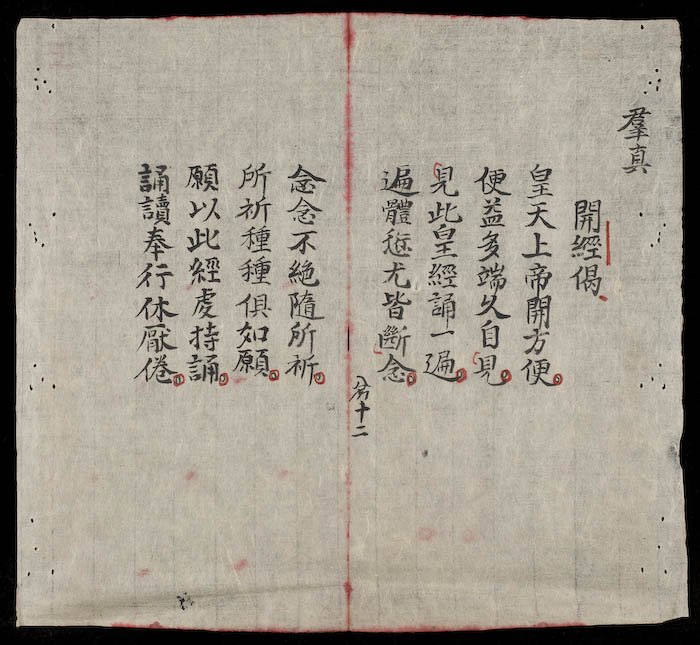 羣真
開經偈
皇天上帝開方便
便益多端久自見
見此皇經誦一遍
遍體愆尤皆斷念
十二
念念不絕隨所祈
所祈種種俱如願
願以此經虔持誦
誦讀奉行休厭倦